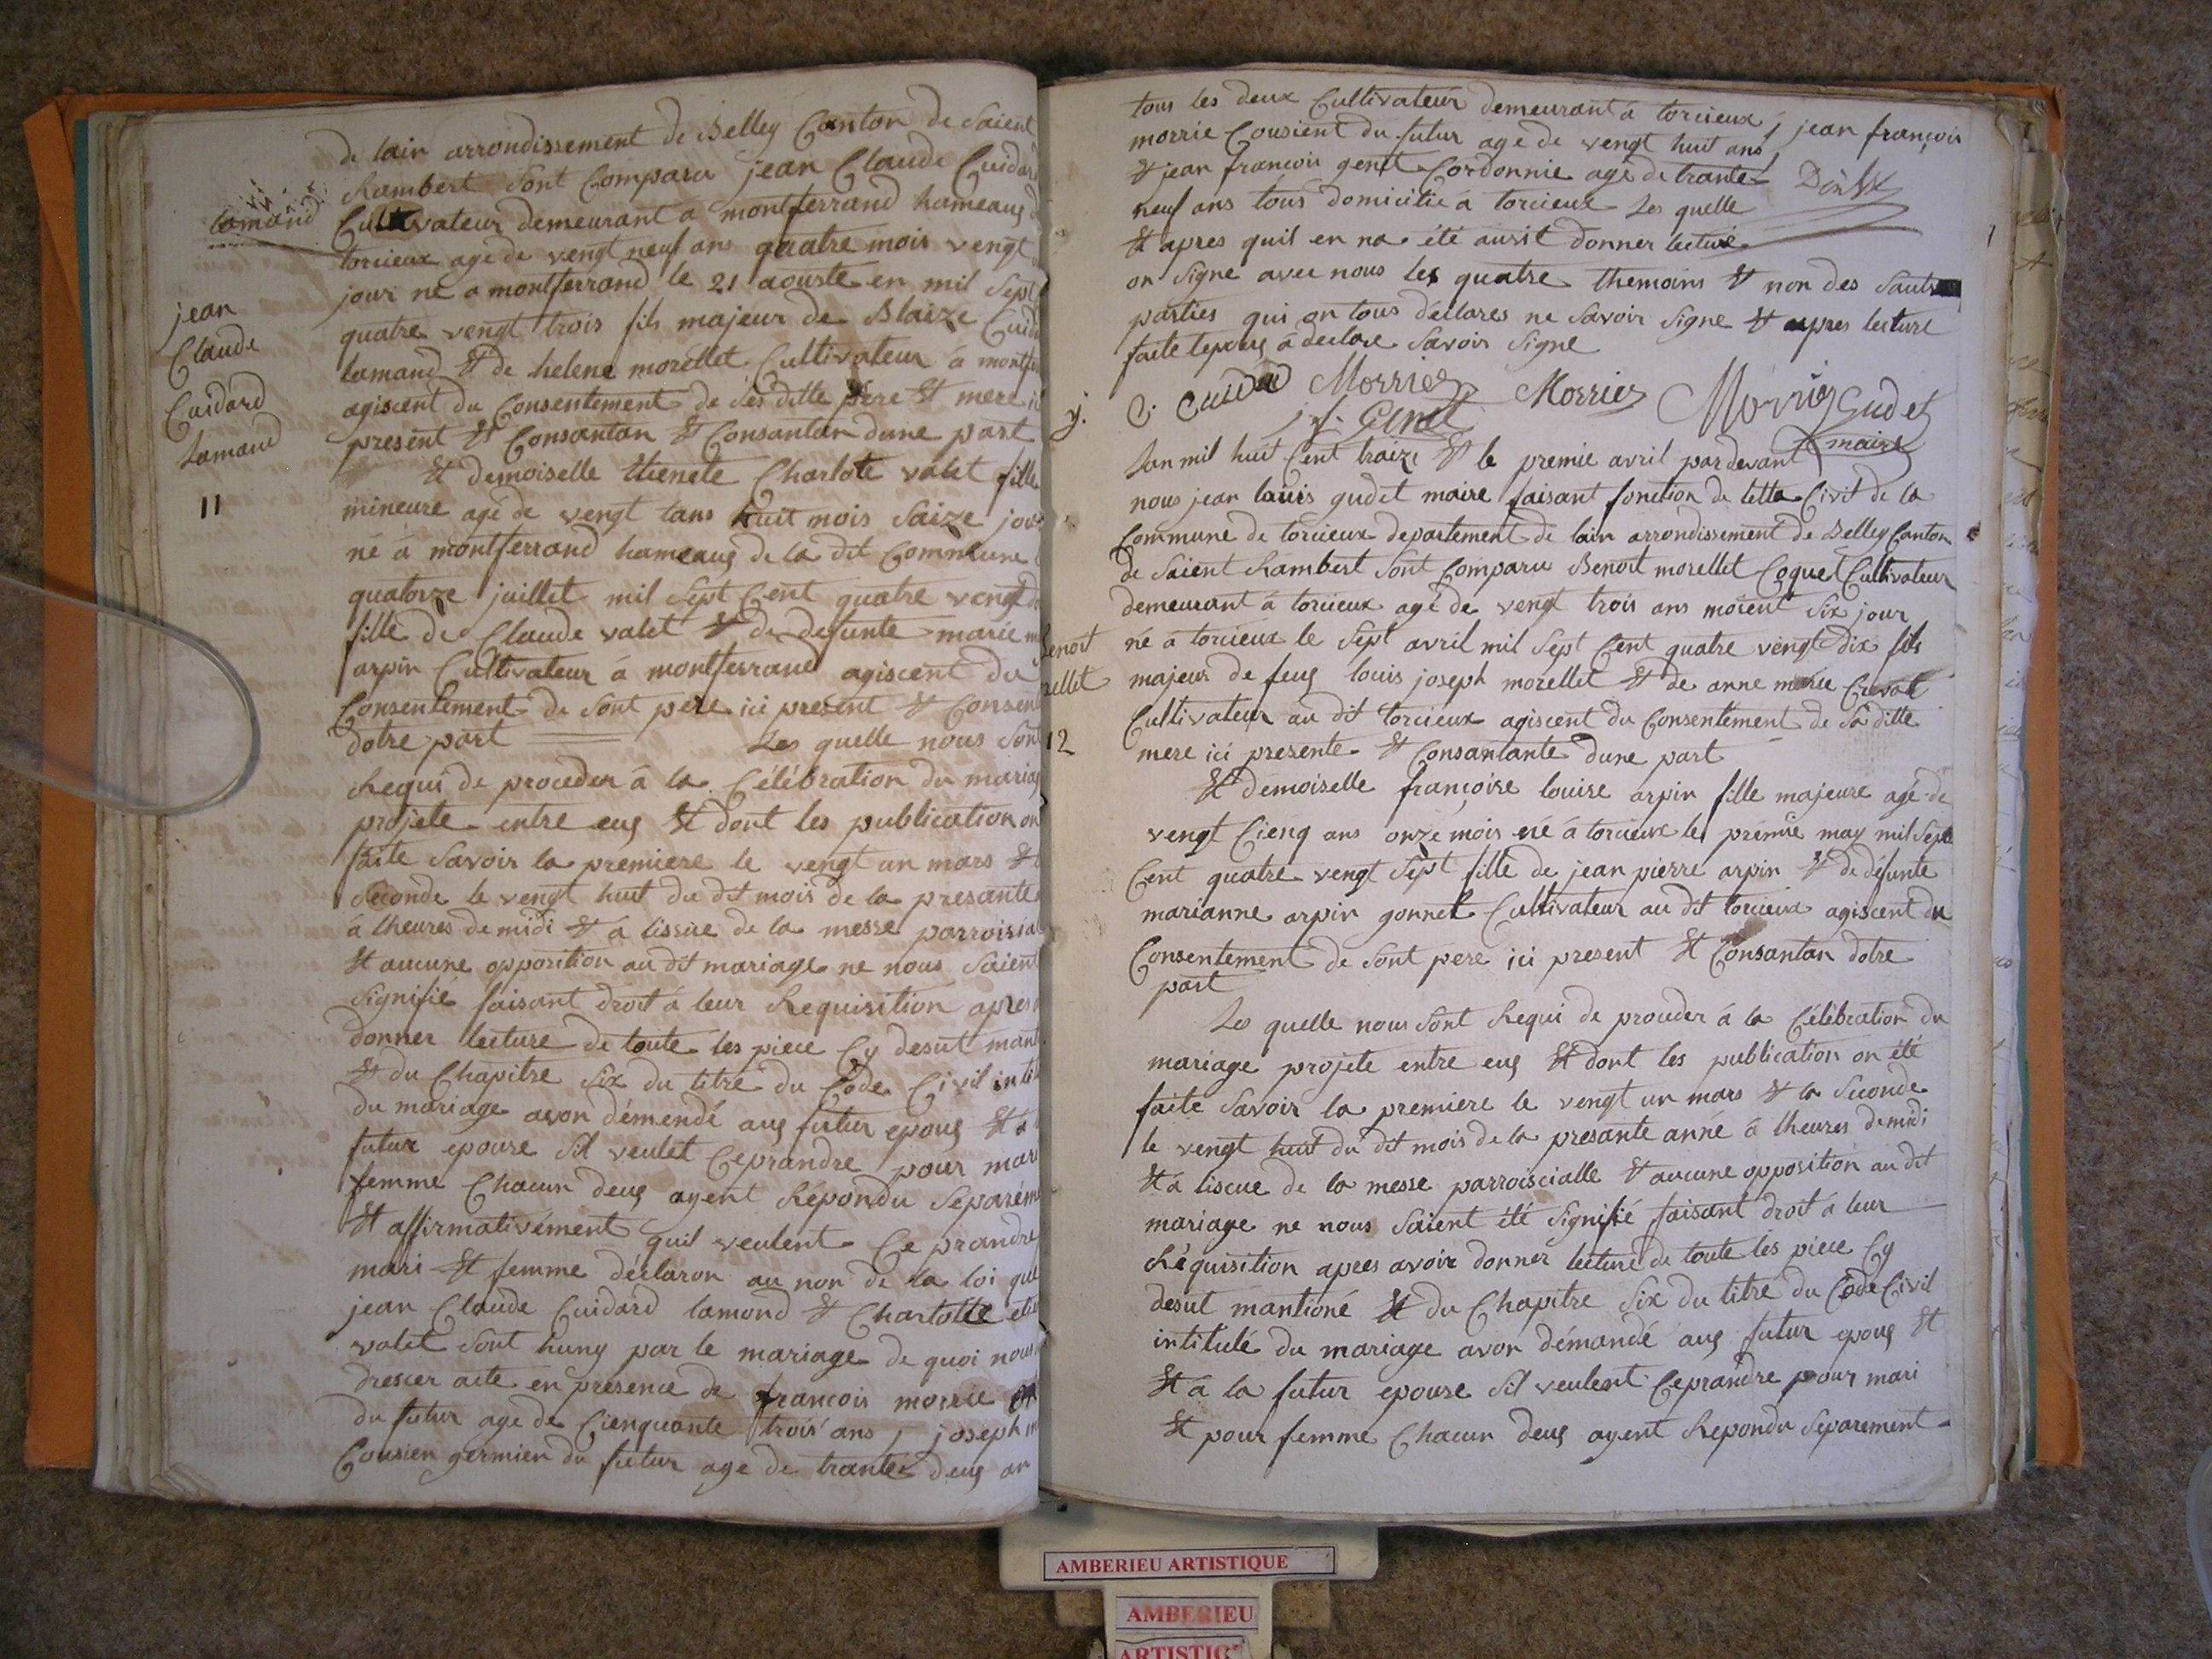 de lain arrondissement de Belley Canton de Saient
Rambert Sont Comparu jean Claude Cuidard
lamand
Cultivateur demeurant a montferrand hameaug
torcieux agé de vengt neuf ans quatre mois vengt
jour né a montferrand le 21 aouste en mil Sept
quatre vengt trois fils majeur de Blaize
lamand Et de helene moréllet Cultivateur á
agiscent du Consentement de Ses ditte pere Et mere
present Et Consantan Et Consantan dune part
jean
Claude
Cuidard
Lamand
11
Et demoiselle Etienete Charlote valet fille
mineure agé de vengt tans huit mois Saize
né á montferrand hameaug de la dit Commune
quatorze juillet mil Sept Cent quatre vengt
fille de Claude valet Et de defunte marie
arpin Cultivateur á montferrand agiscent du
Consentement de Sont pere ici présent Et
dotre part Les quelle nous Sont
Requi de proceder á la Célébration du
projete entre eug Et dont les publication on
faite Savoir la premiere le vengt un mars Et
Seconde le vengt huit du dit mois de la presante
á lheures de midi Et á lissue de la messe
Et aucune opposition au dit mariage ne nous Saient
Signifié faisant droit á leur Requisition apres
donner lecture de toute les piece Cy desut
Et du Chapitre Six du titre du Code Civil
du mariage avon démendé aug futur epoug Et á
futur epouse Sil veulet Ceprandre pour
femme Chacun deug ayent Répondu
Et affirmativément quil veulent Ce prandre
mari Et femme déclaron au non de la loi que
jean Claude Cuidard lamond Et Charlotte
valet Sont huny par le mariage de quoi nous
drescer acte en présence de francois morrie
du futur age de Cienquante trois ans, joseph
Cousien germien du futur age de trante deug an
tous les deux Cultivateur demeurant á torcieux, jean françois
morrie Cousient du futur age de vengt huit ans
Et jean francois genet Cordonnie agé de trante
neuf ans tous domicilié á torcieux Les quelle
Et apres quil en na été ausit donner lecture
on Signe avec nous les quatre themoins Et non des
parties qui on tous déclares ne Savoir Signe Et aupres lecture
faite lepoug á declare Savoir Signe
Cuidard Morriez Morriez Morriez Gudet
j f. Genet maire
Lan mil huit Cent traize Et le premie avril pardevant
nous jean lauis gudet maire faisant fonction de letta Civit de la
Commune de torcieux departement de lain arrondissement de Belley Canton
de Saient Rambert Sont Comparu Benoit morellet Coquet Cultivateur
demeurant á torcieux agé de vengt trois ans moient Six jour
né a torcieux le Sept avril mil Sept Cent quatre vengt dix fils
majeur de feug louis joseph morellet Et de anne marie
Cultivateur au dit torcieux agiscent du Consentement de Sa ditte
mere ici presente Et Consantante dune part
12
Et demoiselle françoise louise arpin fille majeure agé de
vengt Cienq ans onze mois né á torcieux le prémie may mil Sept
Cent quatre vengt Sept fille de jean pierre arpin Et de défunte
marianne arpin gonnet Cultivateur au dit torcieux agiscent du
Consentement de Sont pere ici present Et Consantan dotre
part
Les quelle nous Sont Requi de proceder á la Célébration du
mariage projete entre eug Et dont les publication on été
faite Savoir la premiere le vengt un mars Et la Seconde
le vengt huit du dit mois de la presante anné á lheures de midi
Et á liscue de la messe parroiscialle Et aucune opposition au dit
mariage ne nous Saient été Signifié faisant droit á leur
Réquisition apres avoir donner lecture de toute les piece Cy
desut mantioné Et du Chapitre Six du titre du Code Civil
intitulé du mariage avon démandé aug futur epoug Et
Et á la futur epouse Sil veulent Ceprandre pour mari
Et pour femme Chacun deug ayent Repondu Séparement
AMBERIEU ARTISTIQUE
AMBERIEU
ARTISTIQ